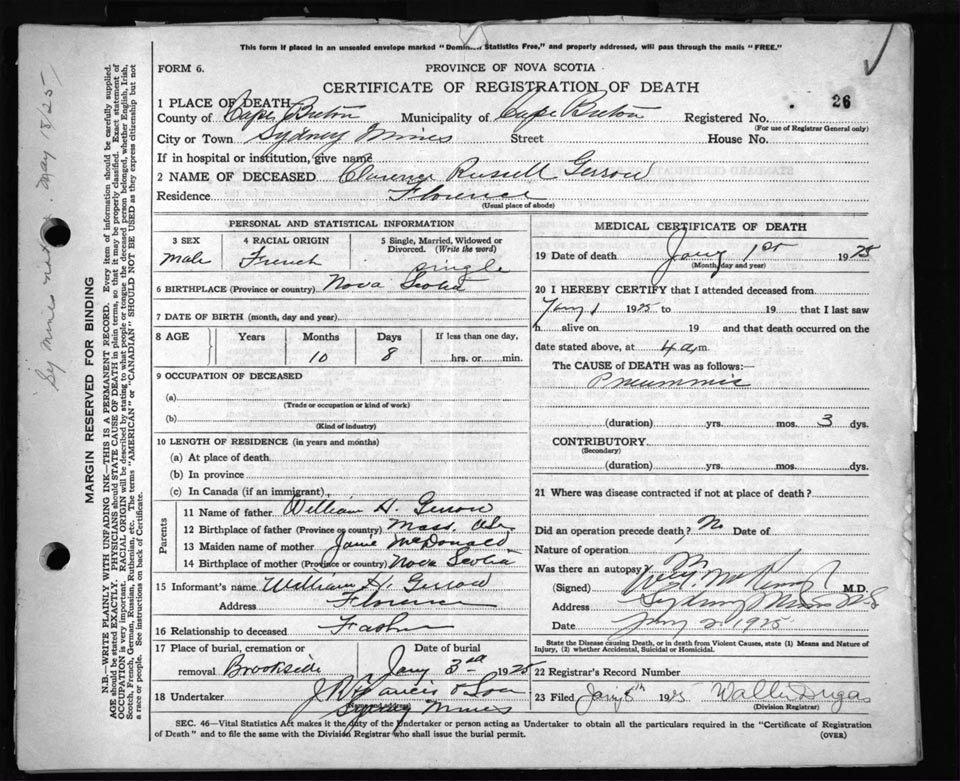 This form if placed in an unsealed envelope marked "Dominion Statistics Free," and properly addressed, will pass through the mails "FREE."
FORM 6.
PROVINCE OF NOVA SCOTIA
CERTIFICATE OF REGISTRATION OF DEATH
26
1 PLACE OF DEATH
County of Cape Breton Municipality of Cape Breton Registered No.
(For use of Registrar General only)
City or Town Sydney Mines Street House No.
If in hospital or institution, give name
2 NAME OF DECEASED Clarence Russell Gerrow
Residence Florence
(Usual place of abode)
PERSONAL AND STATISTICAL INFORMATION
3 SEX 4 RACIAL ORIGIN 5 Single, Married, Widowed or Divorced. (Write the word)
Male French single
6 BIRTHPLACE (Province or country) Nova Scotia
7 DATE OF BIRTH (month, day and year)
8 AGE Years Months Days If less than one day,
10 8 hrs. or min.
9 OCCUPATION OF DECEASED
(a)
(Trade or occupation or kind of work)
(b)
(Kind of industry)
10 LENGTH OF RESIDENCE (in years and months)
(a) At place of death
(b) In province
(c) In Canada (if an immigrant)
Parents
11 Name of father William H. Gerrow
12 Birthplace of father (Province or country) Mass.
13 Maiden name of mother Janie McDonald
14 Birthplace of mother (Province or country) Nova Scotia
15 Informant's name William H. Gerrow
Address Florence
16 Relationship to deceased Father
17 Place of burial, cremation or removal Brookside
Date of burial Jany 3rd 1925
18 Undertaker & Son
Sydney Mines
MEDICAL CERTIFICATE OF DEATH
19 Date of death Jany 1st 1925
(Month, day and year)
20 I HEREBY CERTIFY that I attended deceased from
Jany 1 1925 to 19 that I last saw
h alive on 19 and that death occurred on
date stated above, at 4 a.m.
The CAUSE of DEATH was as follows:—
Pneumonia
(duration) yrs. mos. 3 dys.
CONTRIBUTORY
(Secondary)
(duration) yrs. mos. dys.
21 Where was disease contracted if not at place of death?
Did an operation precede death? No Date of
Nature of operation
Was there an autopsy?
(Signed) M.D.
Address Sydney Mines N.S.
Date Jany 2 1925
State the Disease causing Death, or in death from Violent Causes, state (1) Means and Nature of
Injury, (2) whether Accidental, Suicidal or Homicidal.
22 Registrar's Record Number
23 Filed Jany 5th 1925 Dugas
(Division Registrar)
SEC. 46—Vital Statistics Act makes it the duty of the Undertaker or person acting as Undertaker to obtain all the particulars required in the "Certificate of Registration
of Death" and to file the same with the Division Registrar who shall issue the burial permit.
(OVER)
MARGIN RESERVED FOR BINDING
N.B.—WRITE PLAINLY WITH UNFADING INK—THIS IS A PERMANENT RECORD. Every item of information should be carefully supplied.
AGE should be stated EXACTLY. PHYSICIANS should STATE CAUSE OF DEATH in plain terms, so that it may be properly classified. Exact statement of
OCCUPATION is very important. RACIAL ORIGIN will be described by stating to what people or tongue the deceased person belonged, whether English, Irish,
Scotch, French, German, Russian, Ruthenian, etc. The terms "AMERICAN" or "CANADIAN" SHOULD NOT BE USED as they express citizenship but not
a race or people. See instructions on back of Certificate.